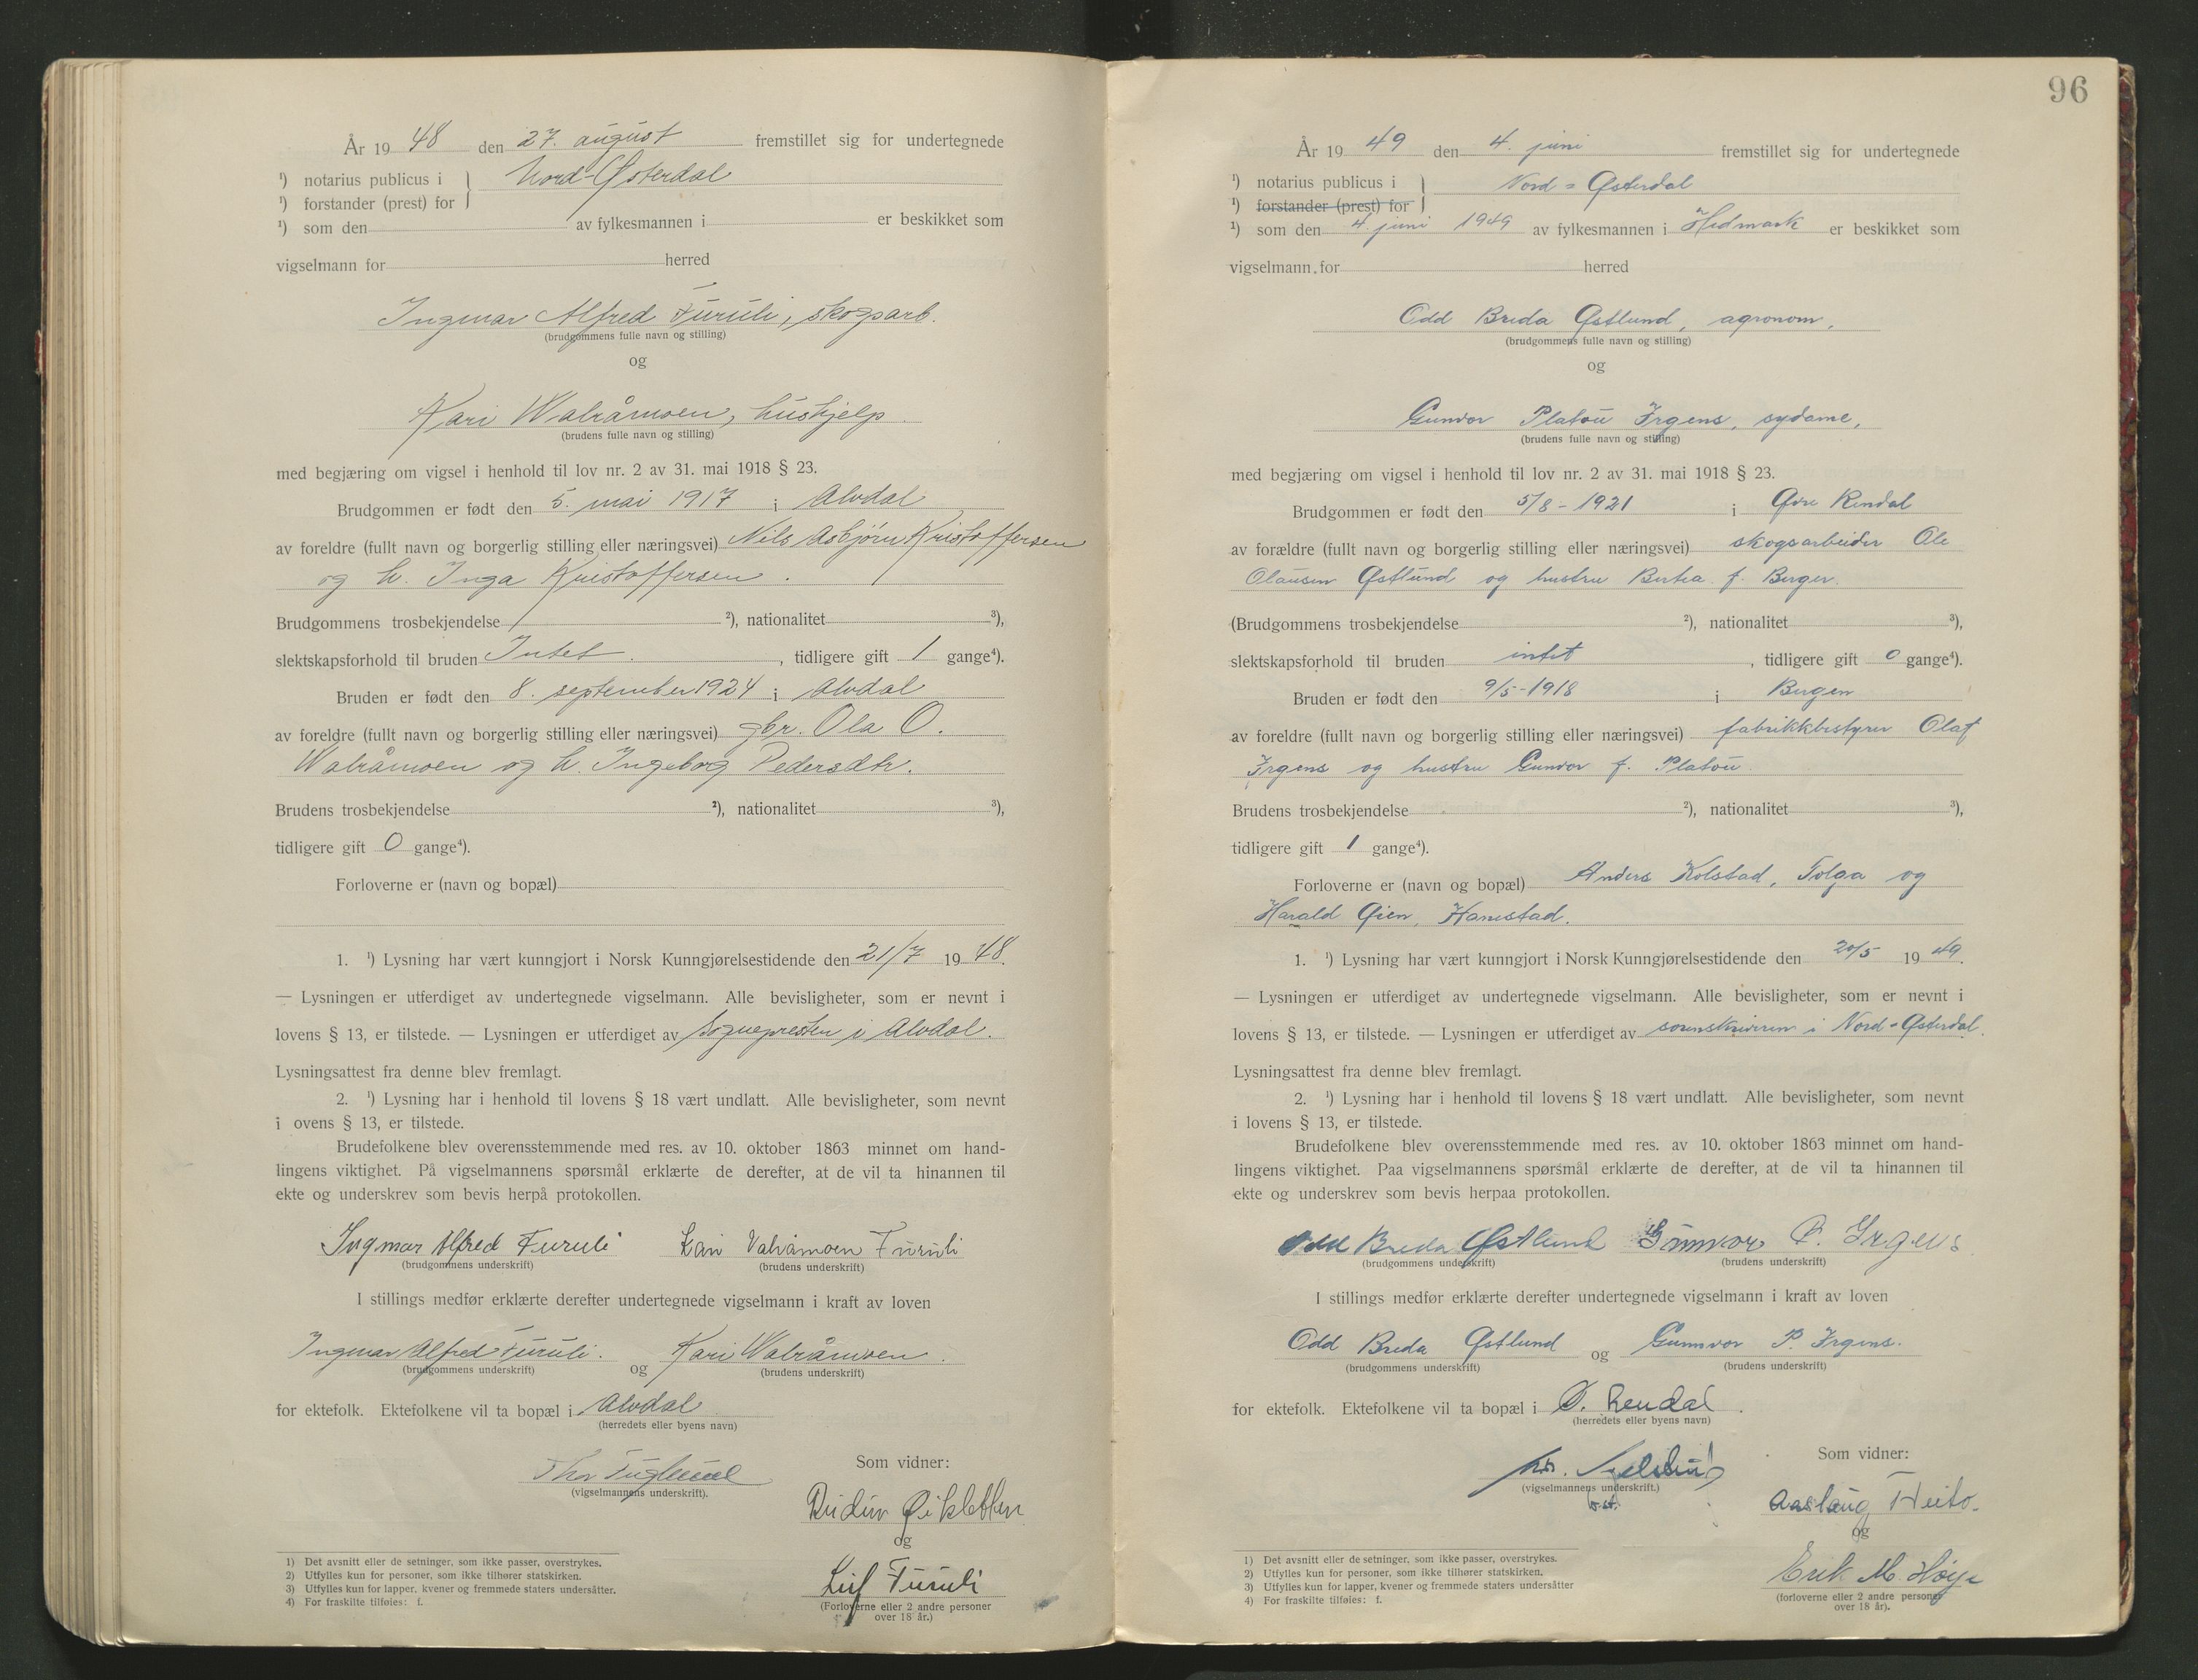 År 19 48 den 27. august fremstillet sig for undertegnede
¹) notarius publicus i
Nord-Østerdal
¹) forstander (prest) for
¹) som den av fylkesmannen i er beskikket som
vigselmann for herred
Ingmar Alfred Furuli, skogsarb.
(brudgommens fulle navn og stilling)
og
Kari Walråmoen, hushjelp
(brudens fulle navn og stilling)
med begjæring om vigsel i henhold til lov nr. 2 av 31. mai 1918 § 23.
Brudgommen er født den 5. mai 1917 i Alvdal
av foreldre (fullt navn og borgerlig stilling eller næringsvei) Nils Asbjørn Kristoffersen
og h. Inga Kristoffersen.
Brudgommens trosbekjendelse ²), nationalitet ³),
slektskapsforhold til bruden Intet. , tidligere gift 1 gange⁴).
Bruden er født den 8. september 1924 i Alvdal
av foreldre (fullt navn og borgerlig stilling eller næringsvei) gbr. Ola O.
Walråmoen og h. Ingeborg Pedersdtr.
Brudens trosbekjendelse ²), nationalitet ³),
tidligere gift 0 gange⁴).
Forloverne er (navn og bopæl)
1. ¹) Lysning har vært kunngjort i Norsk Kunngjørelsestidende den 21/7 19 48.
— Lysningen er utferdiget av undertegnede vigselmann. Alle bevisligheter, som er nevnt i
lovens § 13, er tilstede. — Lysningen er utferdiget av Sognepresten i Alvdal.
Lysningsattest fra denne blev fremlagt.
2. ¹) Lysning har i henhold til lovens § 18 vært undlatt. Alle bevisligheter, som nevnt
i ovens § 13, er tilstede.
Brudefolkene blev overensstemmende med res. av 10. oktober 1863 minnet om hand-
lingens viktighet. På vigselmannens spørsmål erklærte de derefter, at de vil ta hinannen til
ekte og underskrev som bevis herpå protokollen.
Ingmar Alfred Furuli Kari Valråmoen Furuli
(brudgommens underskrift) (brudens underskrift)
I stillings medfør erklærte derefter undertegnede vigselmann i kraft av loven
Ingmar Alfred Furuli. og Kari Walråmoen.
(brudgommens underskrift) (brudens underskrift)
for ektefolk. Ektefolkene vil ta bopæl i Alvdal
(herredets eller byens navn)
Som vidner:
Thor
(vigselmannens underskrift).
og
Leif Furuli
(Forloverne eller 2 andre personer
over 18 år.)
1) Det avsnitt eller de setninger, som ikke passer, overstrykes.
2) Utfylles kun for personer, som ikke tilhører statskirken.
3) Utfylles kun for lapper, kvener og fremmede staters undersåtter.
4) For fraskilte tilføies: f.
96
År 19 49 den 4. juni fremstillet sig for undertegnede
¹) notarius publicus i
Nord-Østerdal
¹) forstander (prest) for
¹) som den 4. juni 1949 av fylkesmannen i Hedmark er beskikket som
vigselmann for herred
Odd Breda Østlund, agronom,
(brudgommens fulle navn og stilling)
og
Gunvor Platou Irgens, sydame,
(brudens fulle navn og stilling)
med begjæring om vigsel i henhold til lov nr. 2 av 31. mai 1918 § 23.
Brudgommen er født den 5/8-1921 i Øvre Rendal
av forældre (fullt navn og borgerlig stilling eller næringsvei) skogsarbeider Ole
Olausen Østlund og hustru Berta f. Berger.
(Brudgommens trosbekjendelse ²), nationalitet ³),
slektskapsforhold til bruden intet , tidligere gift 0 gange⁴).
Bruden er født den 9/5-1918 i Bergen
av foreldre (fullt navn og borgerlig stilling eller næringsvei) fabrikkbestyrer Olaf
Irgens og hustru Gunvor f. Platou.
Brudens trosbekjendelse ²), nationalitet ³),
tidligere gift 1 gange⁴).
Forloverne er (navn og bopæl) Anders Kolstad, Tolga og
Harald Øien, Hanestad.
1. ¹) Lysning har vært kunngjort i Norsk Kunngjørelsestidende den 20/5 19 49.
— Lysningen er utferdiget av undertegnede vigselmann. Alle bevisligheter, som er nevnt i
lovens § 13, er tilstede. — Lysningen er utferdiget av sorenskriveren i Nord-Østerdal.
Lysningsattest fra denne blev fremlagt.
2. ¹) Lysning har i henhold til lovens § 18 vært undlatt. Alle bevisligheter, som nevnt
i lovens § 13, er tilstede.
Brudefolkene blev overensstemmende med res. av 10. oktober 1863 minnet om hand-
lingens viktighet. Paa vigselmannens spørsmål erklærte de derefter, at de vil ta hinannen til
ekte og underskrev som bevis herpaa protokollen.
Odd Breda Østlund Gunnvor P. Irgens
(brudgommens underskrift) (brudens underskrift)
I stillings medfør erklærte derefter undertegnede vigselmann i kraft av loven
Odd Breda Østlund og Gunnvor P. Irgens.
(brudgommens underskrift) (brudens underskrift)
for ektefolk. Ektefolkene vil ta bopæl i Ø. Rendal.
(herredets eller byens navn)
Som vidner:
(vigselmannens underskrift.)
Aaslaug
og
Erik M. Høye
(forloverne eller 2 andre personer
over 18 år).
1) Det avsnitt eller de setninger, som ikke passer, overstrykes.
2) Utfylles kun for personer, som ikke tilhører statskirken.
3) Utfylles kun for lapper, kvener og fremmede staters undersåtter
4) For fraskilte tilføles: f.